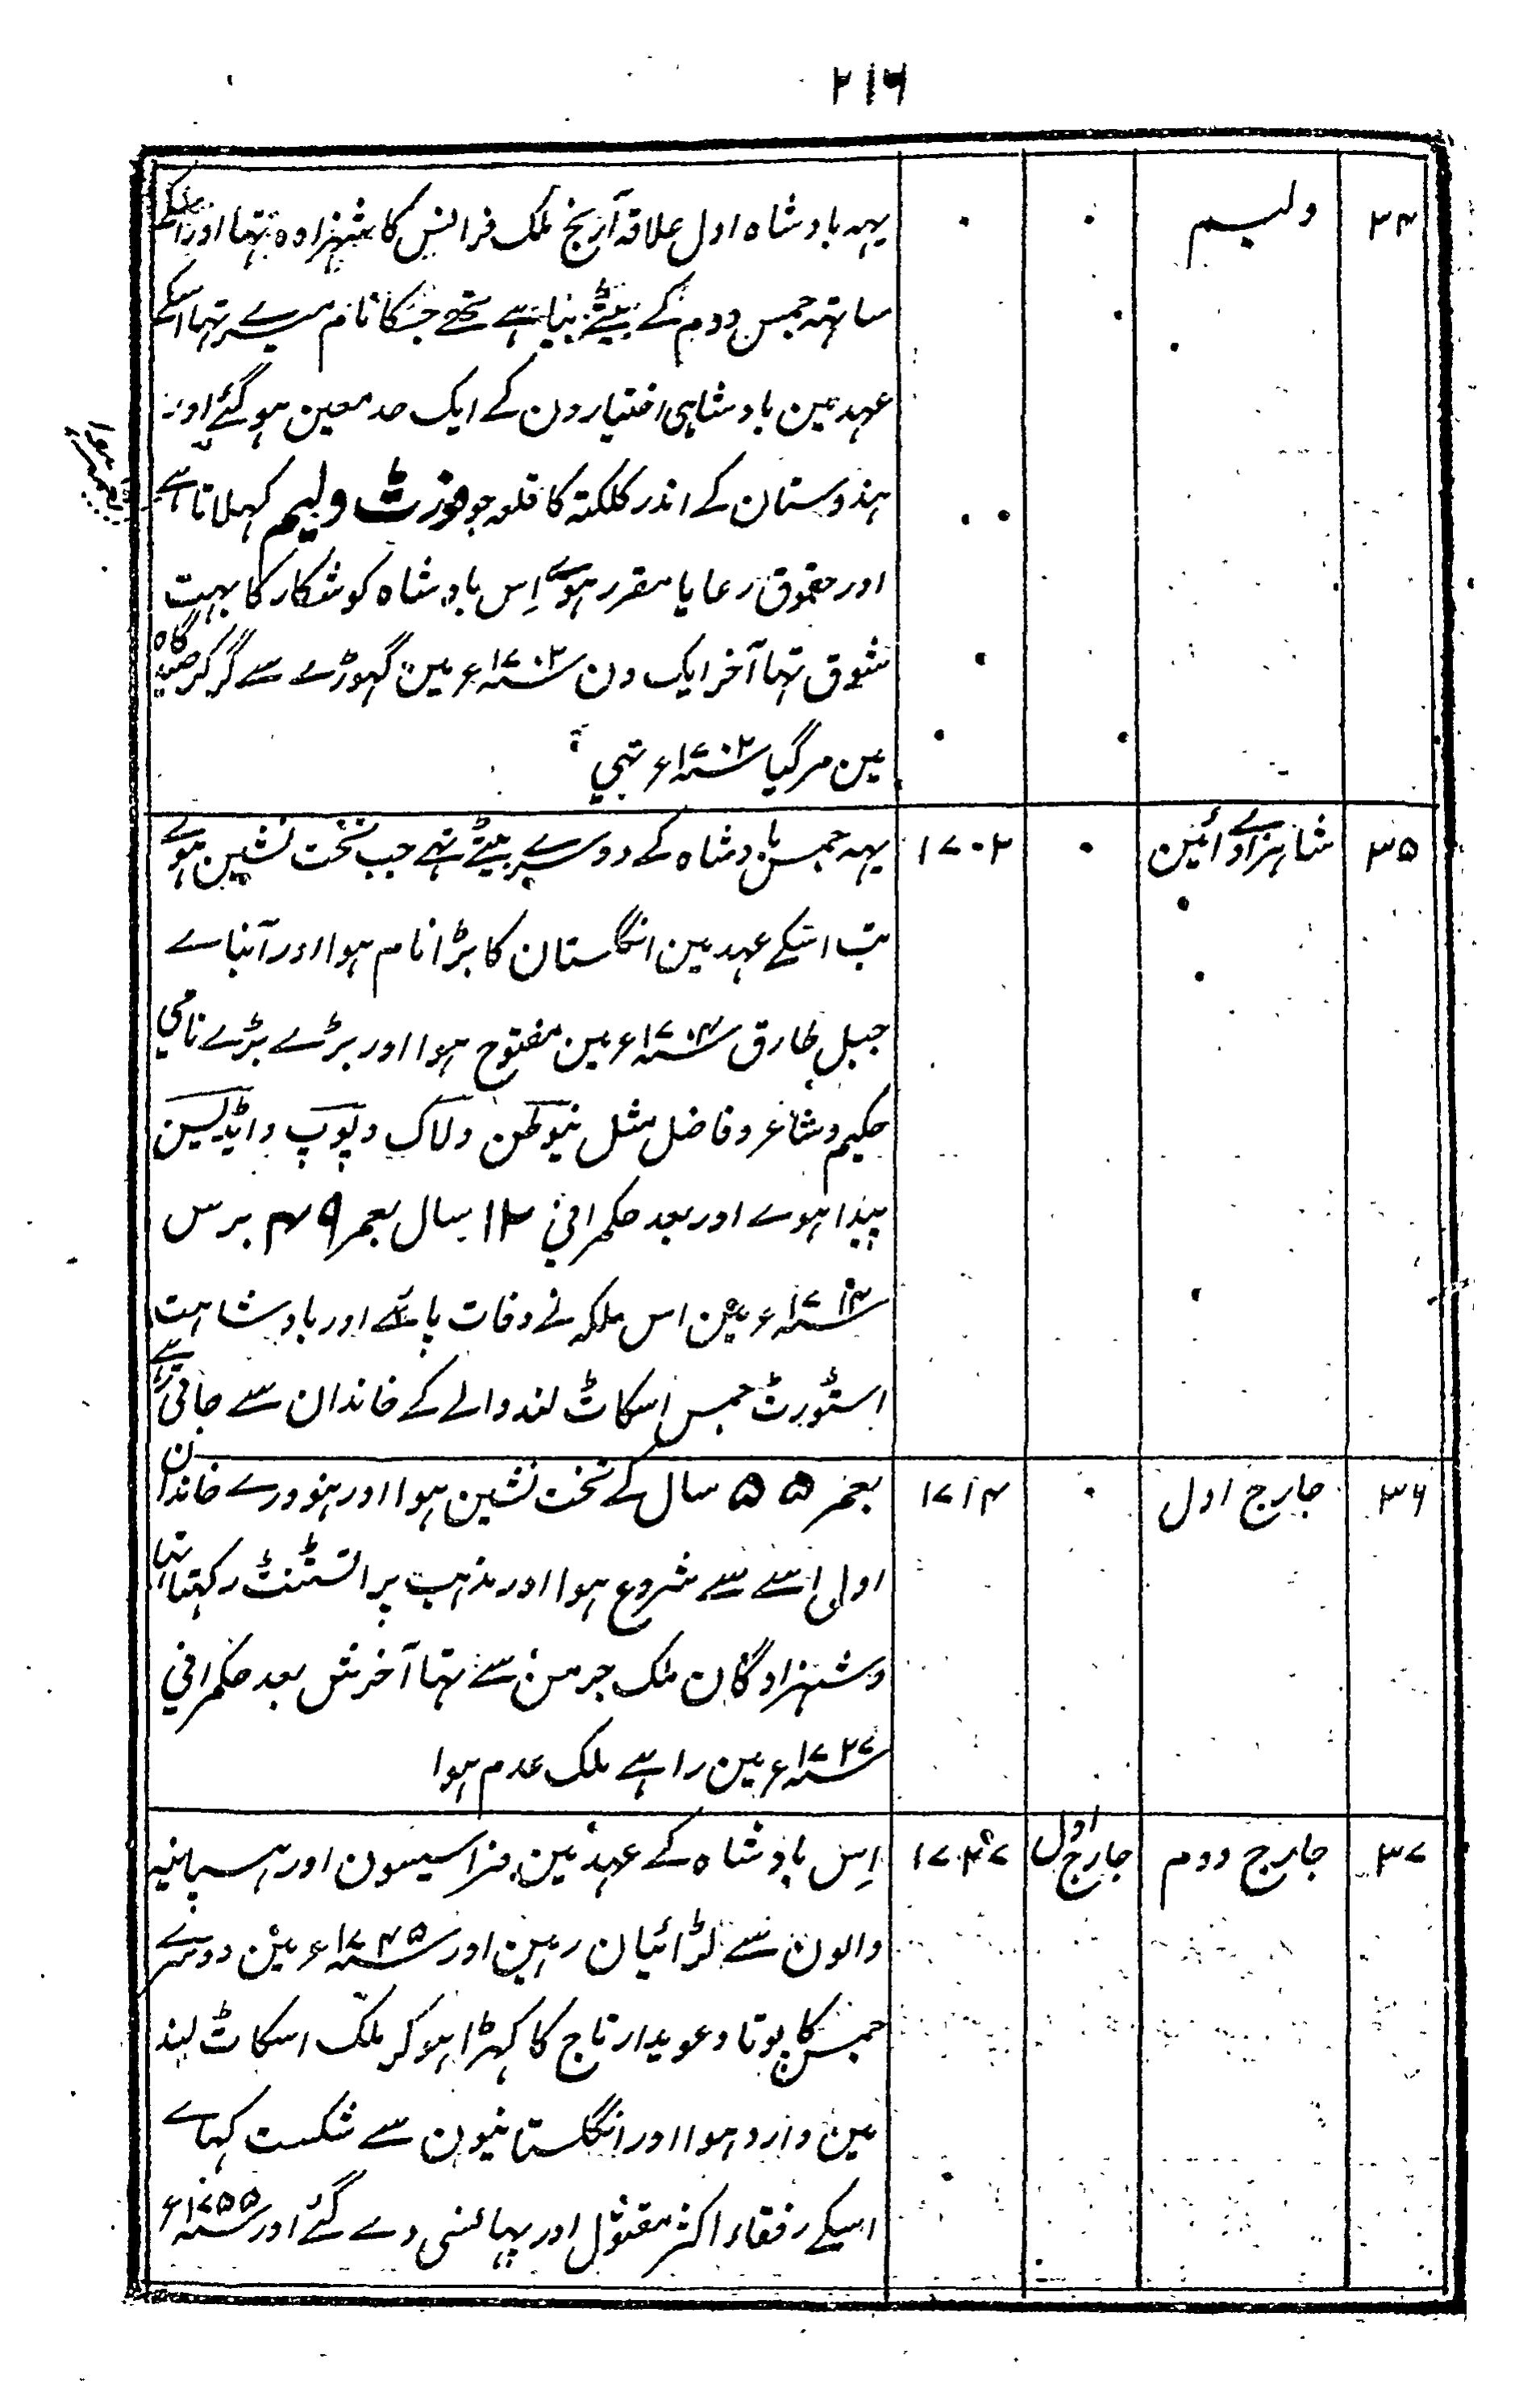 ۲۱۶
۳۴ ولیم ۰ ۰ یہہ بادشاہ اول علاقہ آرنج ملک فرانس کا شہزادہ تہا اور
ساتہہ جمس دوم کے بیٹے بیاہے تہے جسکا نام میرے تہا اسکے
عہد مین بادشاہی اختیارون کے ایک حد معین ہو گئے اور
ہندوستان کے اندر کلکتہ کا قلعہ جو فورٹ ولیم کہلاتا ہے
تعمیر ہوا
اور حقوق رعایا مقرر ہوے اِس بادشاہ کو شکار کا بہت
شوق تہا آخر ایک دن سنہ ۱۷۰۲ء مین گہوڑے سے گر کر صیدگاہ
مین مر گیا سنہ ۱۷۰۲ء تہی
۳۵ شاہزادے ائین ۰ ۱۷۰۲ یہہ جمس بادشاہ کے دوسرے بیٹے تہے جب تخت نشین ہوے
تب اسکے عہد مین انگلستان کا بڑا نام ہوا اور آبناے
جبل طارق سنہ ۱۷۰۴ء مین مفتوح ہوا اور بڑے بڑے نامی
حکیم و شاعر و فاضل مثل نیوطن و لاک و پوپ و ایڈیسن
پیدا ہوے اور بعد حکمرانی ۱۲ سال بعمر ۴۹ برس
سنہ ۱۷۱۴ء مین اس ملکہ نے وفات پائے اور بادشاہت
اسٹورٹ جمس اسکاٹ لند والے کے خاندان سے جاتی رہے
۳۶ جارج اول ۰ ۱۷۱۴ بعمر ۵۵ سال کے تخت نشین ہوا اور ہنوورے خاندان
اول اسے سے شروع ہوا اور مذہب پراتسٹنٹ رکہتا تہا
و شہزادگان ملک جرمن سے تہا آخرش بعد حکمرانی
سنہ ۱۷۲۷ء مین راہے ملک عدم ہوا
۳۷ جارج دوم جارج اول ۱۷۲۷ اِس بادشاہ کے عہد مین فراسیسون اور ہسپانیہ
والون سے لڑائیان رہین اور سنہ ۱۷۴۵ء مین دوسرے
جمس کا پوتا دعویدار تاج کا کہڑا ہو کر ملک اسکاٹ لیند
مین وارد ہوا اور انگلستانیون سے شکست کہاے
اسکے رفقاء اکثر مقتول اور پہانسی دے گئے اور سنہ ۱۷۵۵ء